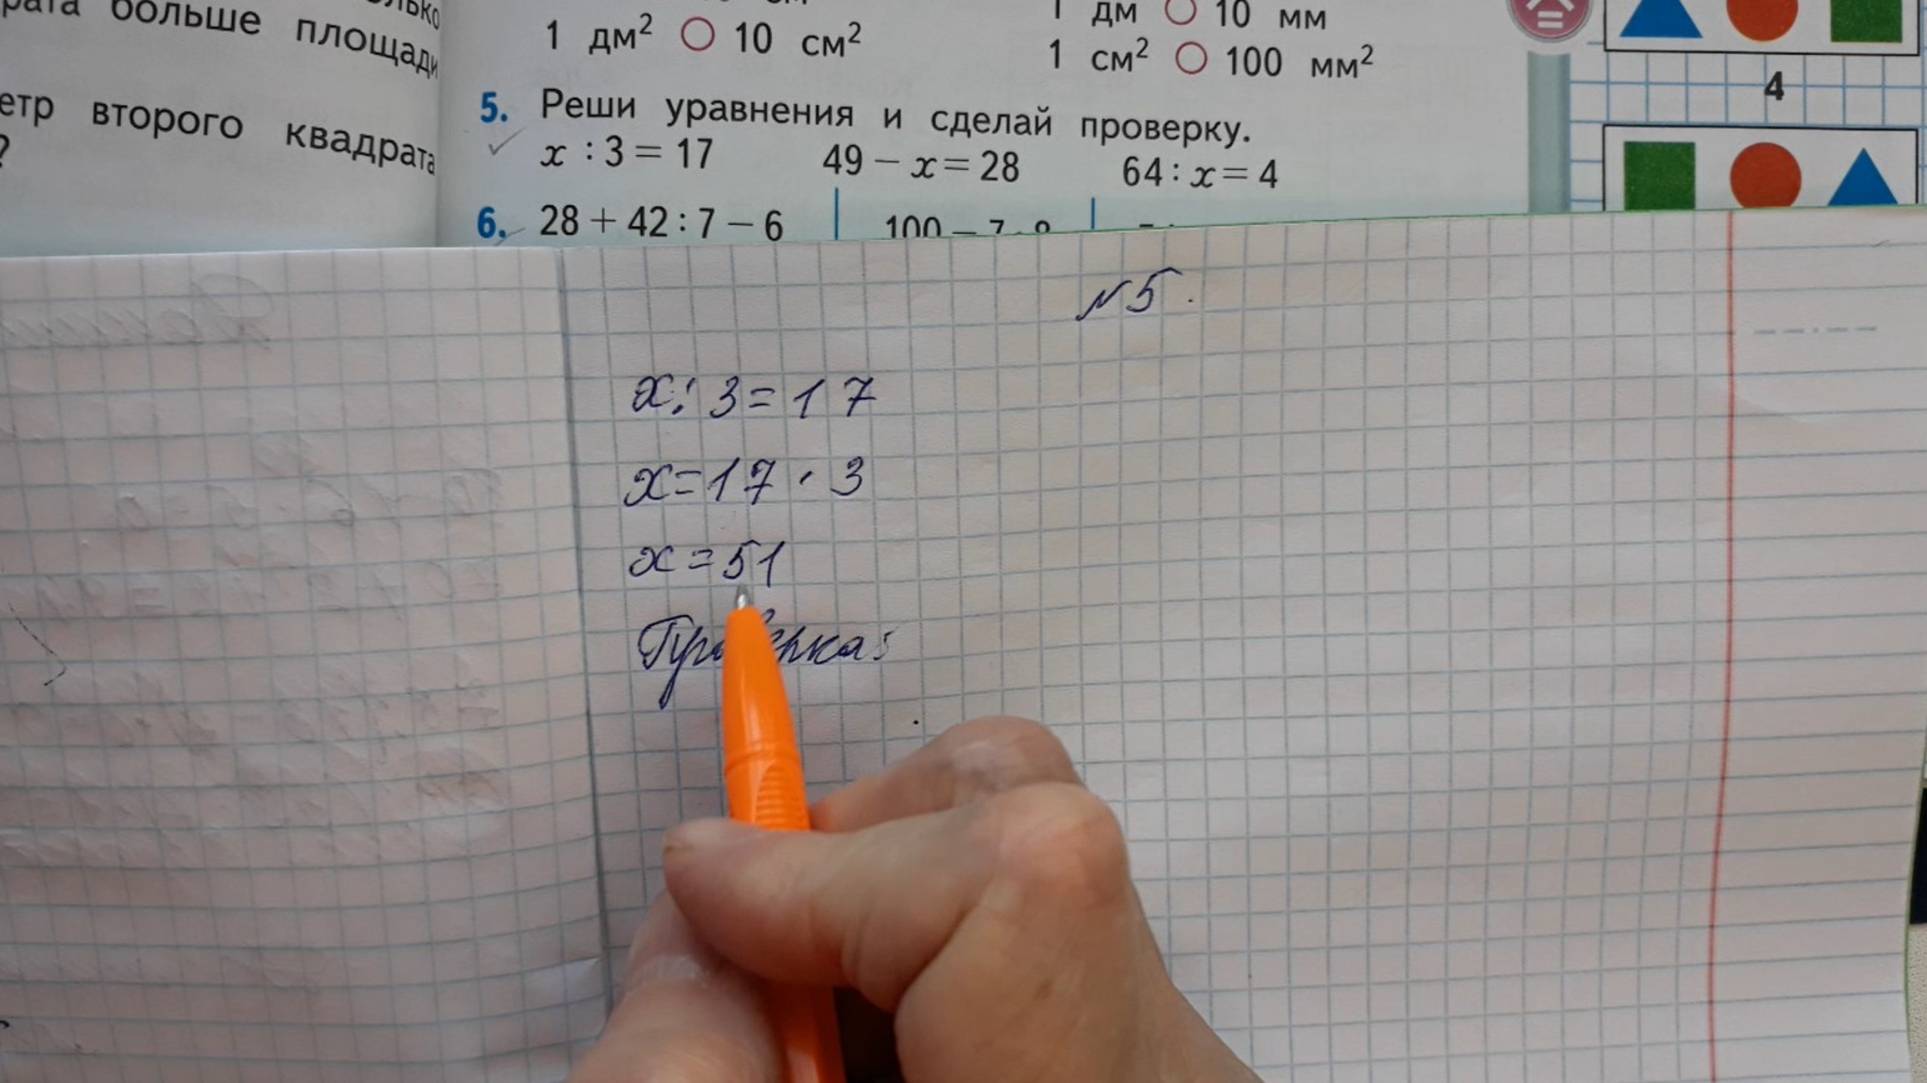 больше площади
етр второго квадрата
?
1 дм² ○ 10 см²
1 дм ○ 10 мм
1 см² ○ 100 мм²
5. Реши уравнения и сделай проверку.
x : 3 = 17 49 − x = 28 64 : x = 4
6. 28 + 42 : 7 − 6
4
№5.
x : 3 = 17
x = 17 · 3
x = 51
Проверка: